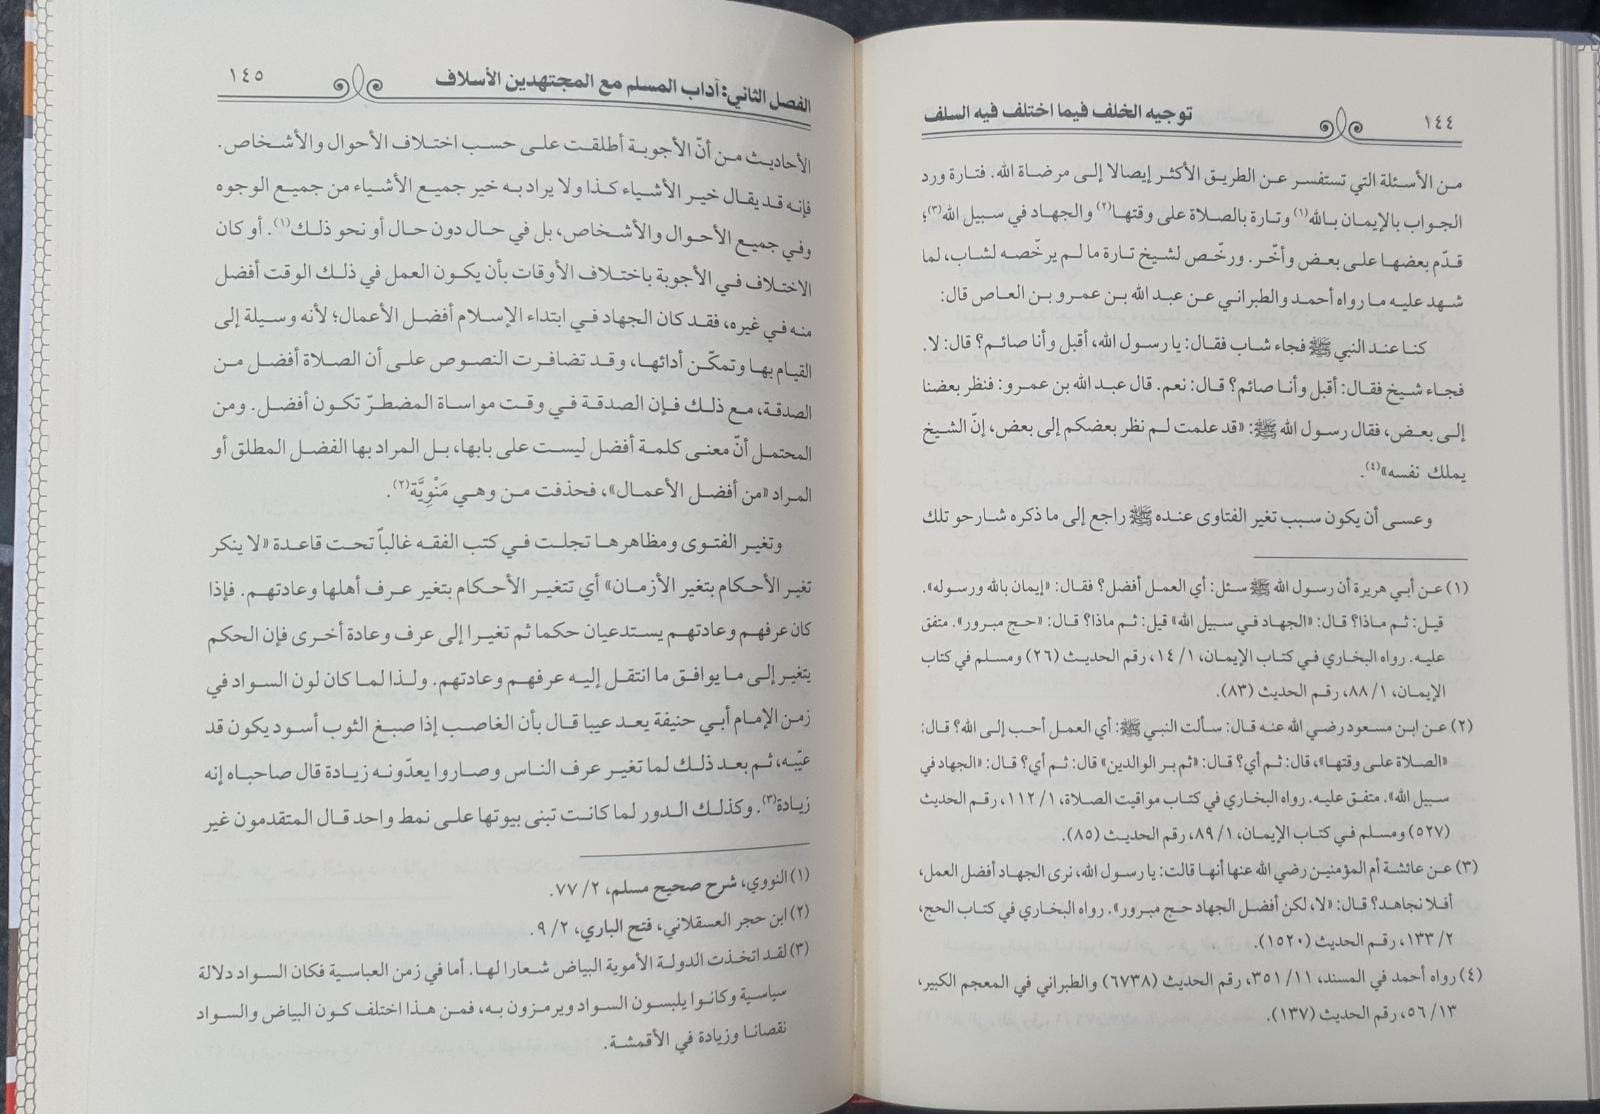 ١٤٤
توجيه الخلف فيما اختلف فيه السلف
من الأسئلة التي تستفسر عن الطريق الأكثر إيصالا إلى مرضاة الله. فتارة ورد
الجواب بالإيمان بالله(١) وتارة بالصلاة على وقتها(٢) والجهاد في سبيل الله(٣)؛
قدّم بعضها على بعض وأخّر. ورخّص لشيخ تارة ما لم يرخّصه لشاب، لما
شهد عليه ما رواه أحمد والطبراني عن عبد الله بن عمرو بن العاص قال:
كنا عند النبي ﷺ فجاء شاب فقال: يا رسول الله، أقبل وأنا صائم؟ قال: لا.
فجاء شيخ فقال: أقبل وأنا صائم؟ قال: نعم. قال عبد الله بن عمرو: فنظر بعضنا
إلى بعض، فقال رسول الله ﷺ: «قد علمت لم نظر بعضكم إلى بعض، إنّ الشيخ
يملك نفسه»(٤).
وعسى أن يكون سبب تغير الفتاوى عنده ﷺ راجع إلى ما ذكره شارحو تلك
(١) عن أبي هريرة أن رسول الله ﷺ سئل: أي العمل أفضل؟ فقال: «إيمان بالله ورسوله».
قيل: ثم ماذا؟ قال: «الجهاد في سبيل الله» قيل: ثم ماذا؟ قال: «حج مبرور». متفق
عليه. رواه البخاري في كتاب الإيمان، ١/ ١٤، رقم الحديث (٢٦) ومسلم في كتاب
الإيمان، ١/ ٨٨، رقم الحديث (٨٣).
(٢) عن ابن مسعود رضي الله عنه قال: سألت النبي ﷺ: أي العمل أحب إلى الله؟ قال:
«الصلاة على وقتها»، قال: ثم أي؟ قال: «ثم بر الوالدين» قال: ثم أي؟ قال: «الجهاد في
سبيل الله». متفق عليه. رواه البخاري في كتاب مواقيت الصلاة، ١/ ١١٢، رقم الحديث
(٥٢٧) ومسلم في كتاب الإيمان، ١/ ٨٩، رقم الحديث (٨٥).
(٣) عن عائشة أم المؤمنين رضي الله عنها أنها قالت: يا رسول الله، نرى الجهاد أفضل العمل،
أفلا نجاهد؟ قال: «لا، لكن أفضل الجهاد حج مبرور». رواه البخاري في كتاب الحج،
٢/ ١٣٣، رقم الحديث (١٥٢٠).
(٤) رواه أحمد في المسند، ١١/ ٣٥١، رقم الحديث (٦٧٣٨) والطبراني في المعجم الكبير،
١٣/ ٥٦، رقم الحديث (١٣٧).
الفصل الثاني: آداب المسلم مع المجتهدين الأسلاف
١٤٥
الأحاديث من أنّ الأجوبة أطلقت على حسب اختلاف الأحوال والأشخاص.
فإنه قد يقال خير الأشياء كذا ولا يراد به خير جميع الأشياء من جميع الوجوه
وفي جميع الأحوال والأشخاص، بل في حال دون حال أو نحو ذلك(١). أو كان
الاختلاف في الأجوبة باختلاف الأوقات بأن يكون العمل في ذلك الوقت أفضل
منه في غيره، فقد كان الجهاد في ابتداء الإسلام أفضل الأعمال؛ لأنه وسيلة إلى
القيام بها وتمكّن أدائها، وقد تضافرت النصوص على أن الصلاة أفضل من
الصدقة، مع ذلك فإن الصدقة في وقت مواساة المضطرّ تكون أفضل. ومن
المحتمل أنّ معنى كلمة أفضل ليست على بابها، بل المراد بها الفضل المطلق أو
المراد «من أفضل الأعمال»، فحذفت من وهي مَنْوِيَّة(٢).
وتغير الفتوى ومظاهرها تجلت في كتب الفقه غالباً تحت قاعدة «لا ينكر
تغير الأحكام بتغير الأزمان» أي تتغير الأحكام بتغير عرف أهلها وعادتهم. فإذا
كان عرفهم وعادتهم يستدعيان حكما ثم تغيرا إلى عرف وعادة أخرى فإن الحكم
يتغير إلى ما يوافق ما انتقل إليه عرفهم وعادتهم. ولذا لما كان لون السواد في
زمن الإمام أبي حنيفة يعد عيبا قال بأن الغاصب إذا صبغ الثوب أسود يكون قد
عيّبه، ثم بعد ذلك لما تغير عرف الناس وصاروا يعدّونه زيادة قال صاحباه إنه
زيادة(٣). وكذلك الدور لما كانت تبنى بيوتها على نمط واحد قال المتقدمون غير
(١) النووي، شرح صحيح مسلم، ٢/ ٧٧.
(٢) ابن حجر العسقلاني، فتح الباري، ٢/ ٩.
(٣) لقد اتخذت الدولة الأموية البياض شعارا لها. أما في زمن العباسية فكان السواد دلالة
سياسية وكانوا يلبسون السواد ويرمزون به، فمن هذا اختلف كون البياض والسواد
نقصانا وزيادة في الأقمشة.